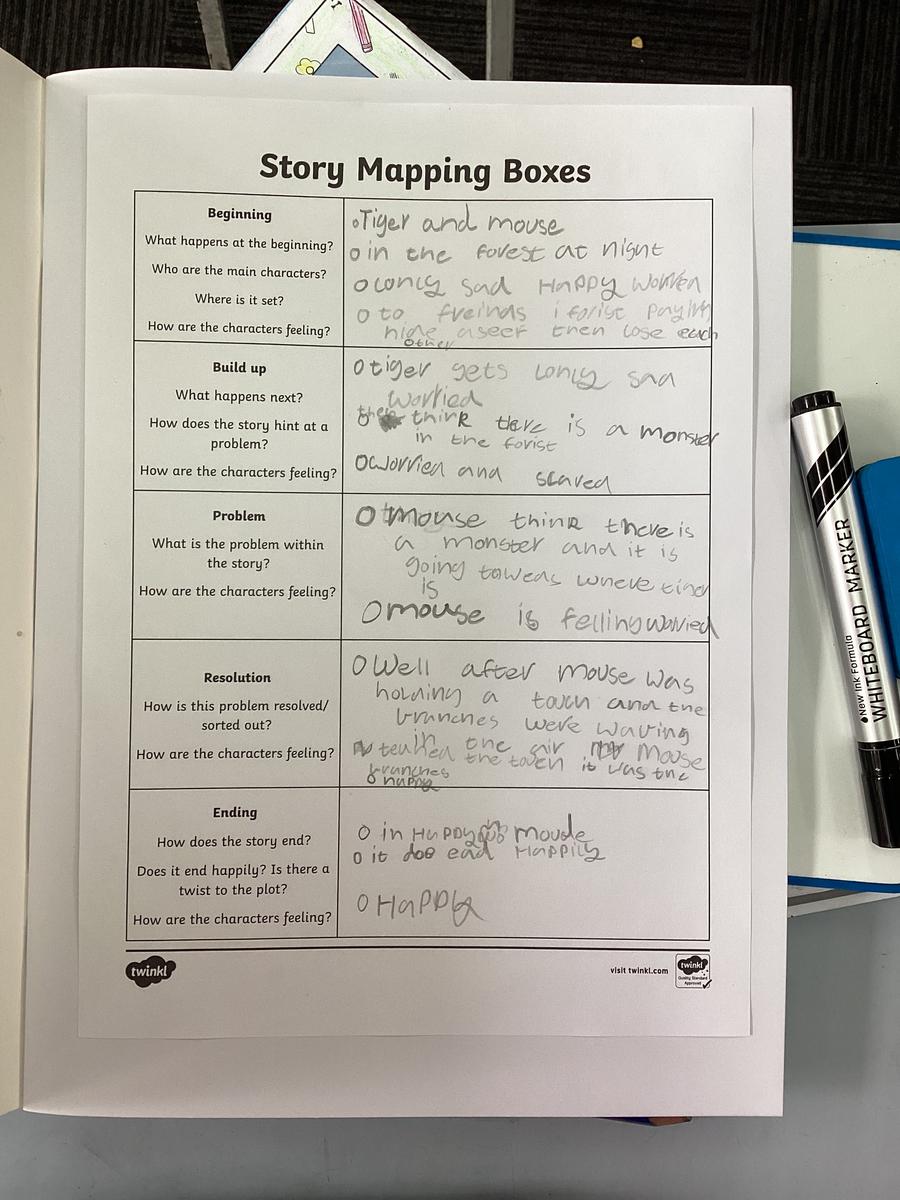 Story Mapping Boxes
Beginning
What happens at the beginning?
Who are the main characters?
Where is it set?
How are the characters feeling?
Tiger and mouse
in the forest at night
lonly sad Happy worried
to freinds i forist payin
hide aseef then lose each
other
Build up
What happens next?
How does the story hint at a
problem?
How are the characters feeling?
tiger gets lonly sad
worried
then think there is a monster
in the forist
worried and scared
Problem
What is the problem within
the story?
How are the characters feeling?
mouse think there is
a monster and it is
going towerds where tiger
is
mouse is felling worried
Resolution
How is this problem resolved/
sorted out?
How are the characters feeling?
Well after mouse was
holding a touch and the
branches were waving
in the air Mouse
the touch it was the
branches
happy
Ending
How does the story end?
Does it end happily? Is there a
twist to the plot?
How are the characters feeling?
in Happy moude
it doe end Happily
Happy
twinkl
visit twinkl.com
twinkl
Quality Standard
Approved
New Ink Formula
WHITEBOARD MARKER